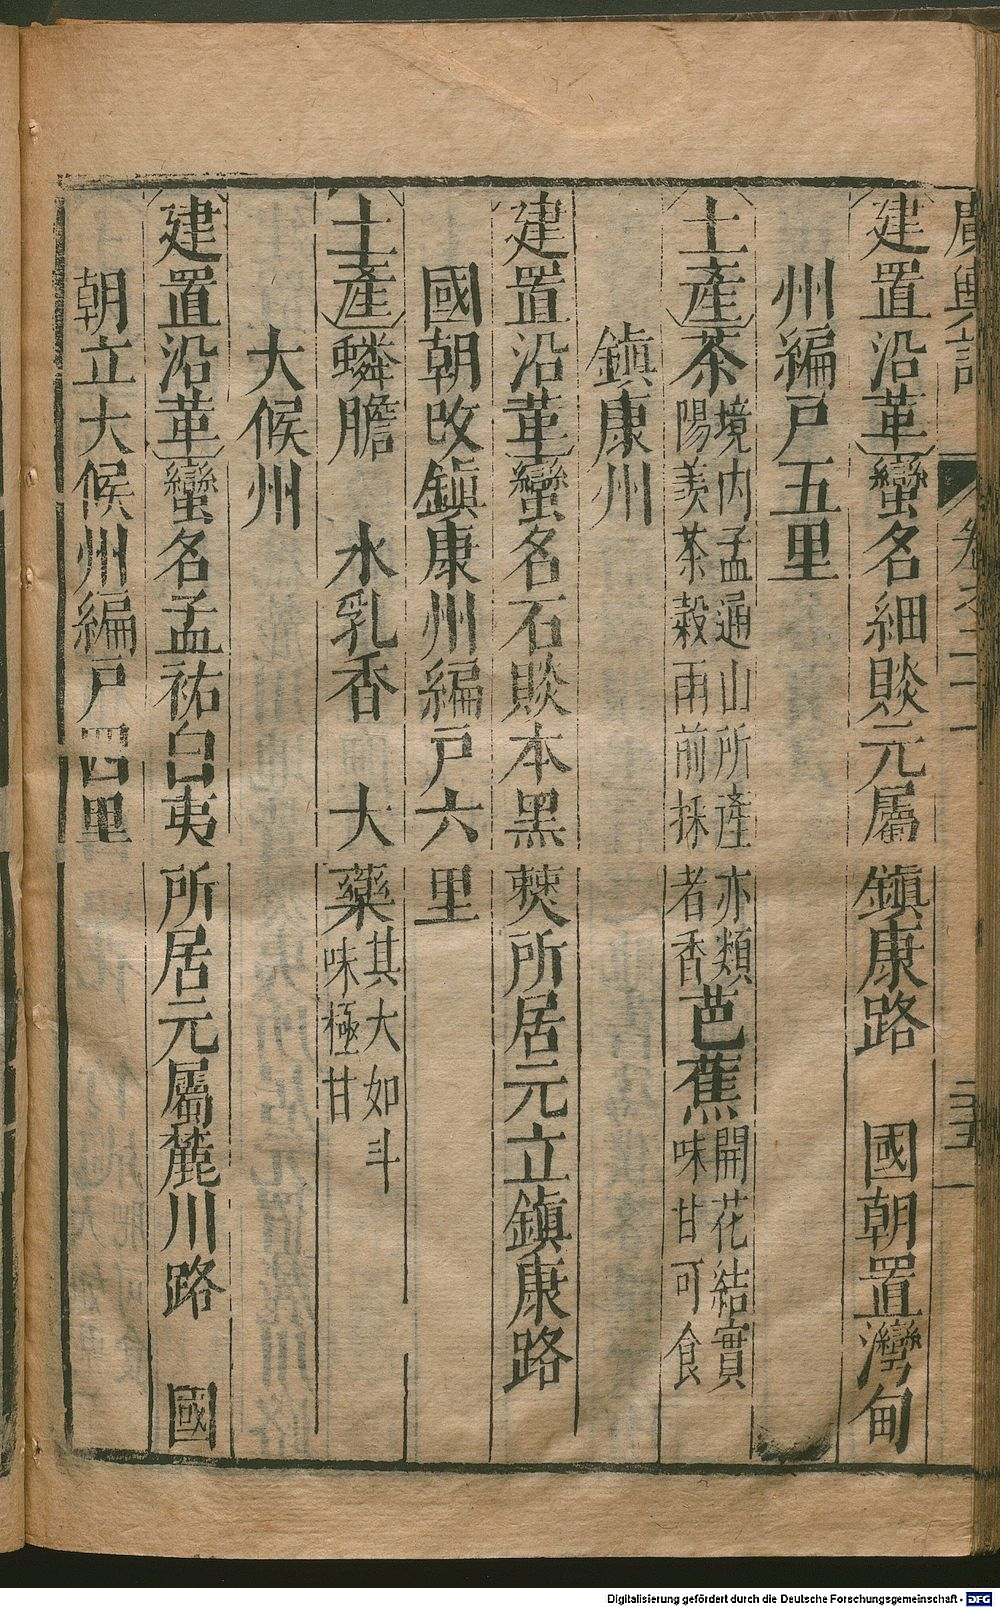 廣輿記 卷之二十一 三五
建置沿革蠻名細賧元屬鎮康路 國朝置灣甸
州編戶五里
土產茶境內孟通山所產亦類陽羨茶穀雨前採者香芭蕉開花結實味甘可食
鎮康州
建置沿革蠻名石賧本黑僰所居元立鎮康路
國朝改鎮康州編戶六里
土產鱗膽 水乳香 大藥其大如斗味極甘
大候州
建置沿革蠻名孟祐白夷所居元屬麓川路 國
朝立大候州編戶四里
Digitalisierung gefördert durch die Deutsche Forschungsgemeinschaft - DFG